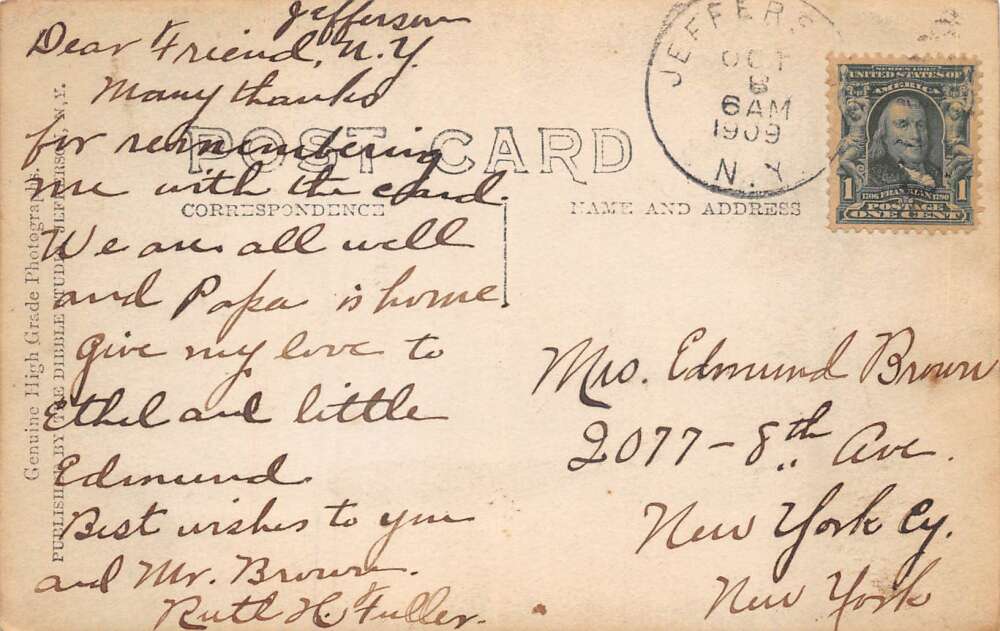 Jefferson
N.Y.
Dear Friend,
Many thanks
for remembering
me with the card.
We are all well
and Papa is home
Give my love to
Ethel and little
Edmund.
Best wishes to you
and Mr. Brown.
Ruth H. Fuller.
POST CARD
CORRESPONDENCE
NAME AND ADDRESS
Genuine High Grade Photograph
PUBLISHED BY THE DIBBLE STUDIO, JEFFERSON, N.Y.
JEFFERS
OCT
8
6 AM
1909
N.Y.
SERIES 1902
UNITED STATES OF
AMERICA
1 1
1706 FRANKLIN 1790
POSTAGE
ONE CENT
Mrs. Edmund Brown
2077 - 8th Ave.
New York Cy.
New York